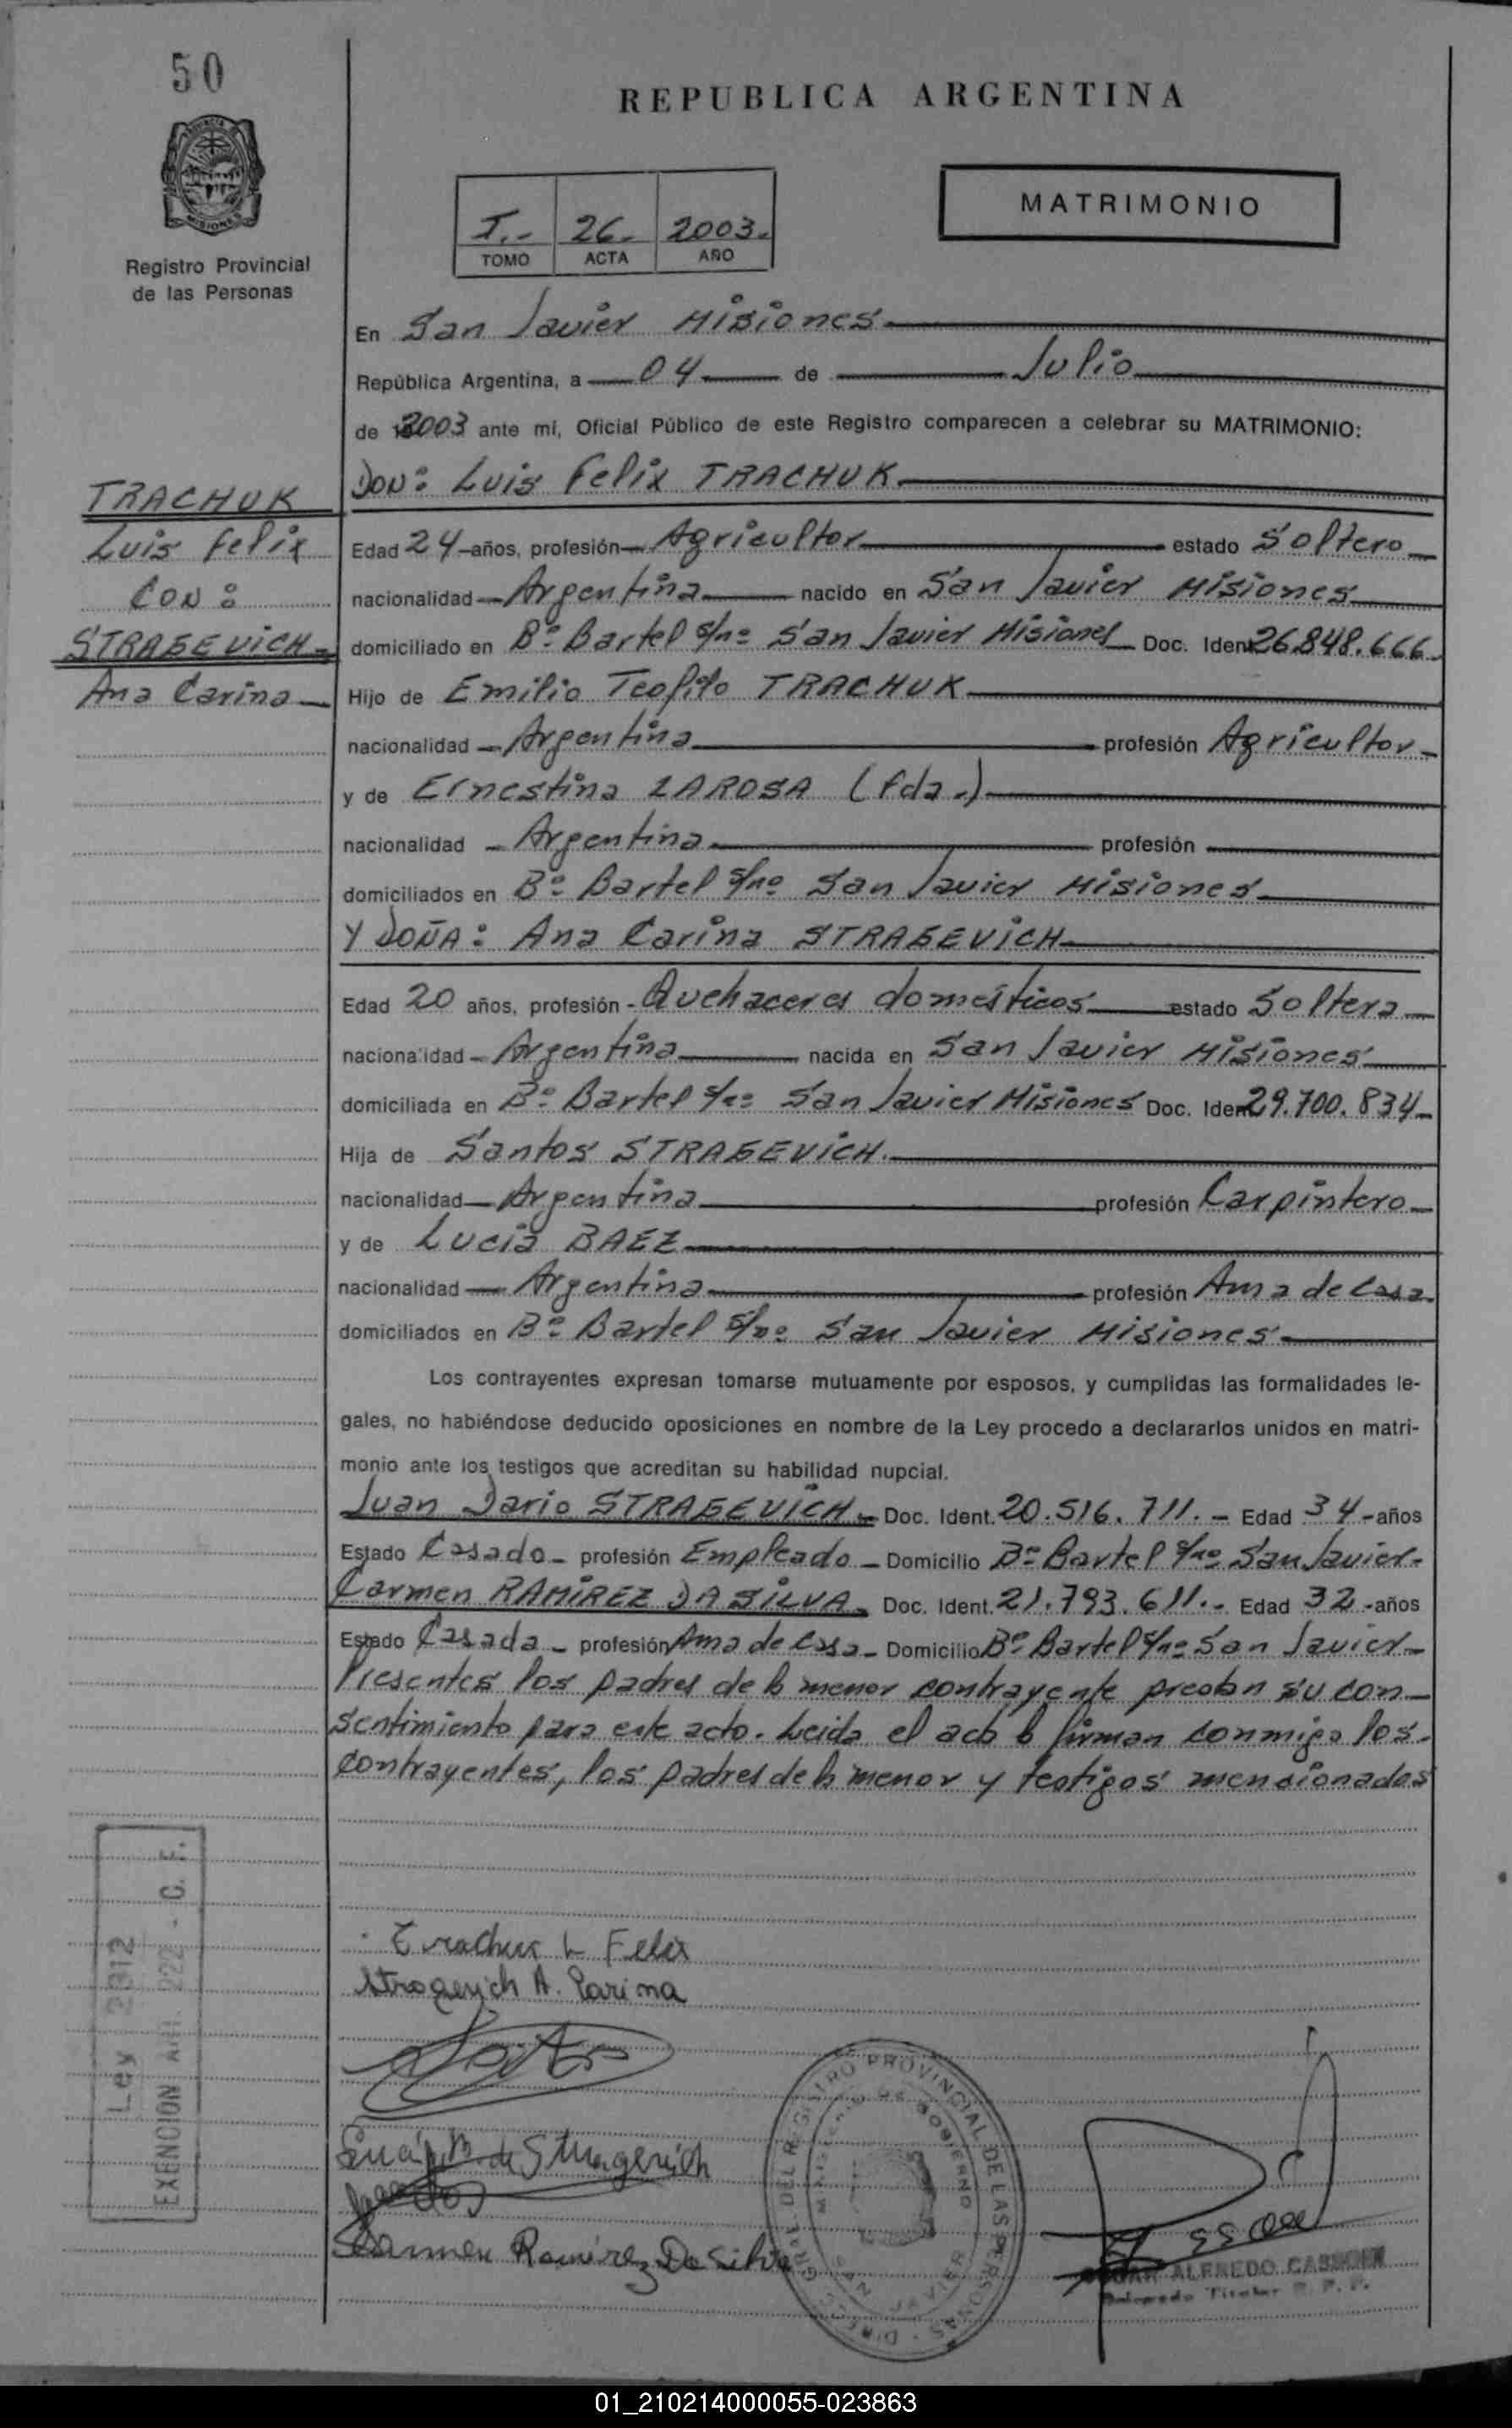 50
REPUBLICA ARGENTINA
MATRIMONIO
I.- 26- 2003.-
TOMO ACTA AÑO
MISIONES
Registro Provincial
de las Personas
En San Javier Misiones
República Argentina, a 04 de Julio
de 2003 ante mí, Oficial Público de este Registro comparecen a celebrar su MATRIMONIO:
TRACHUK
Luis Felix
CON:
STRAGEVICH
Ana Carina
DON: Luis Felix TRACHUK
Edad 24 años, profesión Agricultor estado Soltero
nacionalidad Argentina nacido en San Javier Misiones
domiciliado en Bº Bartel s/nº San Javier Misiones Doc. Ident. 26.848.666.
Hijo de Emilio Teofilo TRACHUK
nacionalidad Argentina profesión Agricultor
y de Ernestina ZAROSA (fda.)
nacionalidad Argentina profesión
domiciliados en Bº Bartel s/nº San Javier Misiones
Y DOÑA: Ana Carina STRAGEVICH
Edad 20 años, profesión Quehaceres domésticos estado Soltera
nacionalidad Argentina nacida en San Javier Misiones
domiciliada en Bº Bartel s/nº San Javier Misiones Doc. Ident. 29.700.834
Hija de Santos STRAGEVICH.
nacionalidad Argentina profesión Carpintero
y de Lucia BAEZ
nacionalidad Argentina profesión Ama de Casa
domiciliados en Bº Bartel s/nº San Javier Misiones
Los contrayentes expresan tomarse mutuamente por esposos, y cumplidas las formalidades le-
gales, no habiéndose deducido oposiciones en nombre de la Ley procedo a declararlos unidos en matri-
monio ante los testigos que acreditan su habilidad nupcial.
Juan Dario STRAGEVICH Doc. Ident. 20.516.711.- Edad 34 años
Estado Casado profesión Empleado Domicilio Bº Bartel s/nº San Javier
Carmen RAMIREZ DA SILVA Doc. Ident. 21.793.611.- Edad 32 años
Estado Casada profesión Ama de Casa Domicilio Bº Bartel s/nº San Javier
Presentes los padres de la menor contrayente prestan su con-
sentimiento para este acto. Leida el acta la firman conmigo los
contrayentes, los padres de la menor y testigos mencionados
Ley 2312
EXENCION Art. 222 - C. F.
Trachuk L Felix
Stragevich A. Carina
Lucia B. de Stragevich
Carmen Ramirez Da Silva
DIREC. GRAL. DEL REGISTRO PROVINCIAL DE LAS PERSONAS
MINISTERIO DE GOBIERNO
SAN JAVIER
ALFREDO
Delegado Titular R. P. P.
01_210214000055-023863